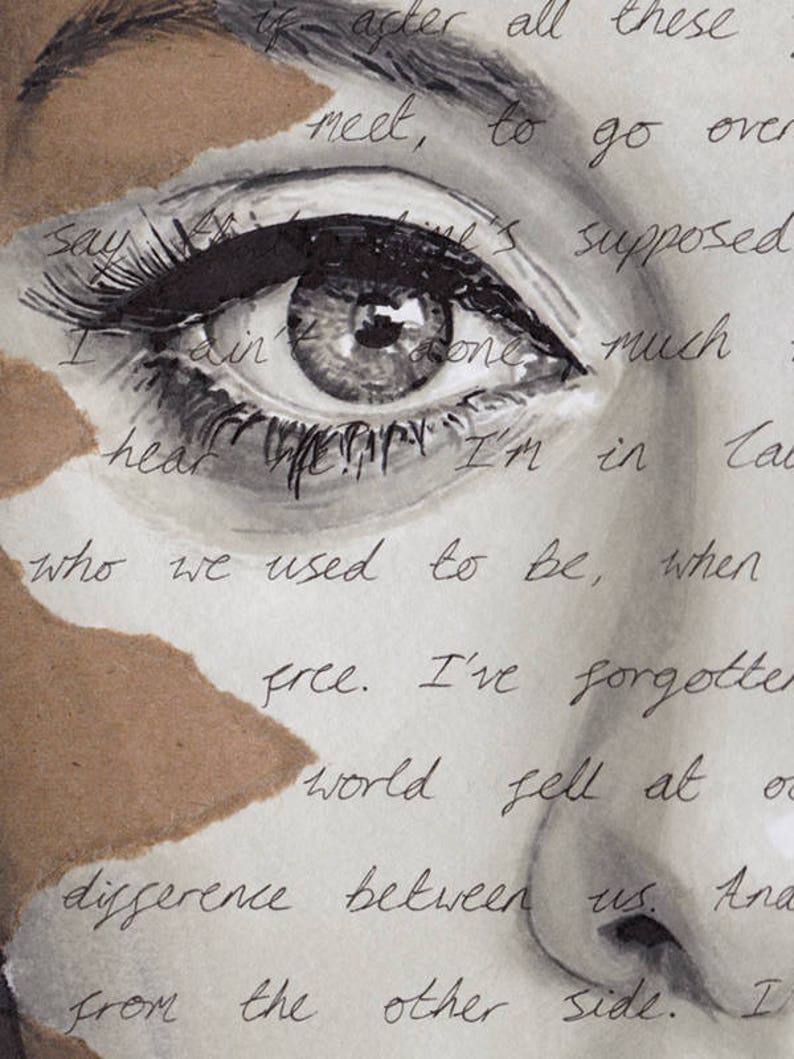 if after all these
meet, to go over
say that time's supposed
I ain't done much
hear me? I'm in
who we used to be, when
free. I've forgotten
world fell at
difference between us. And
from the other side. I